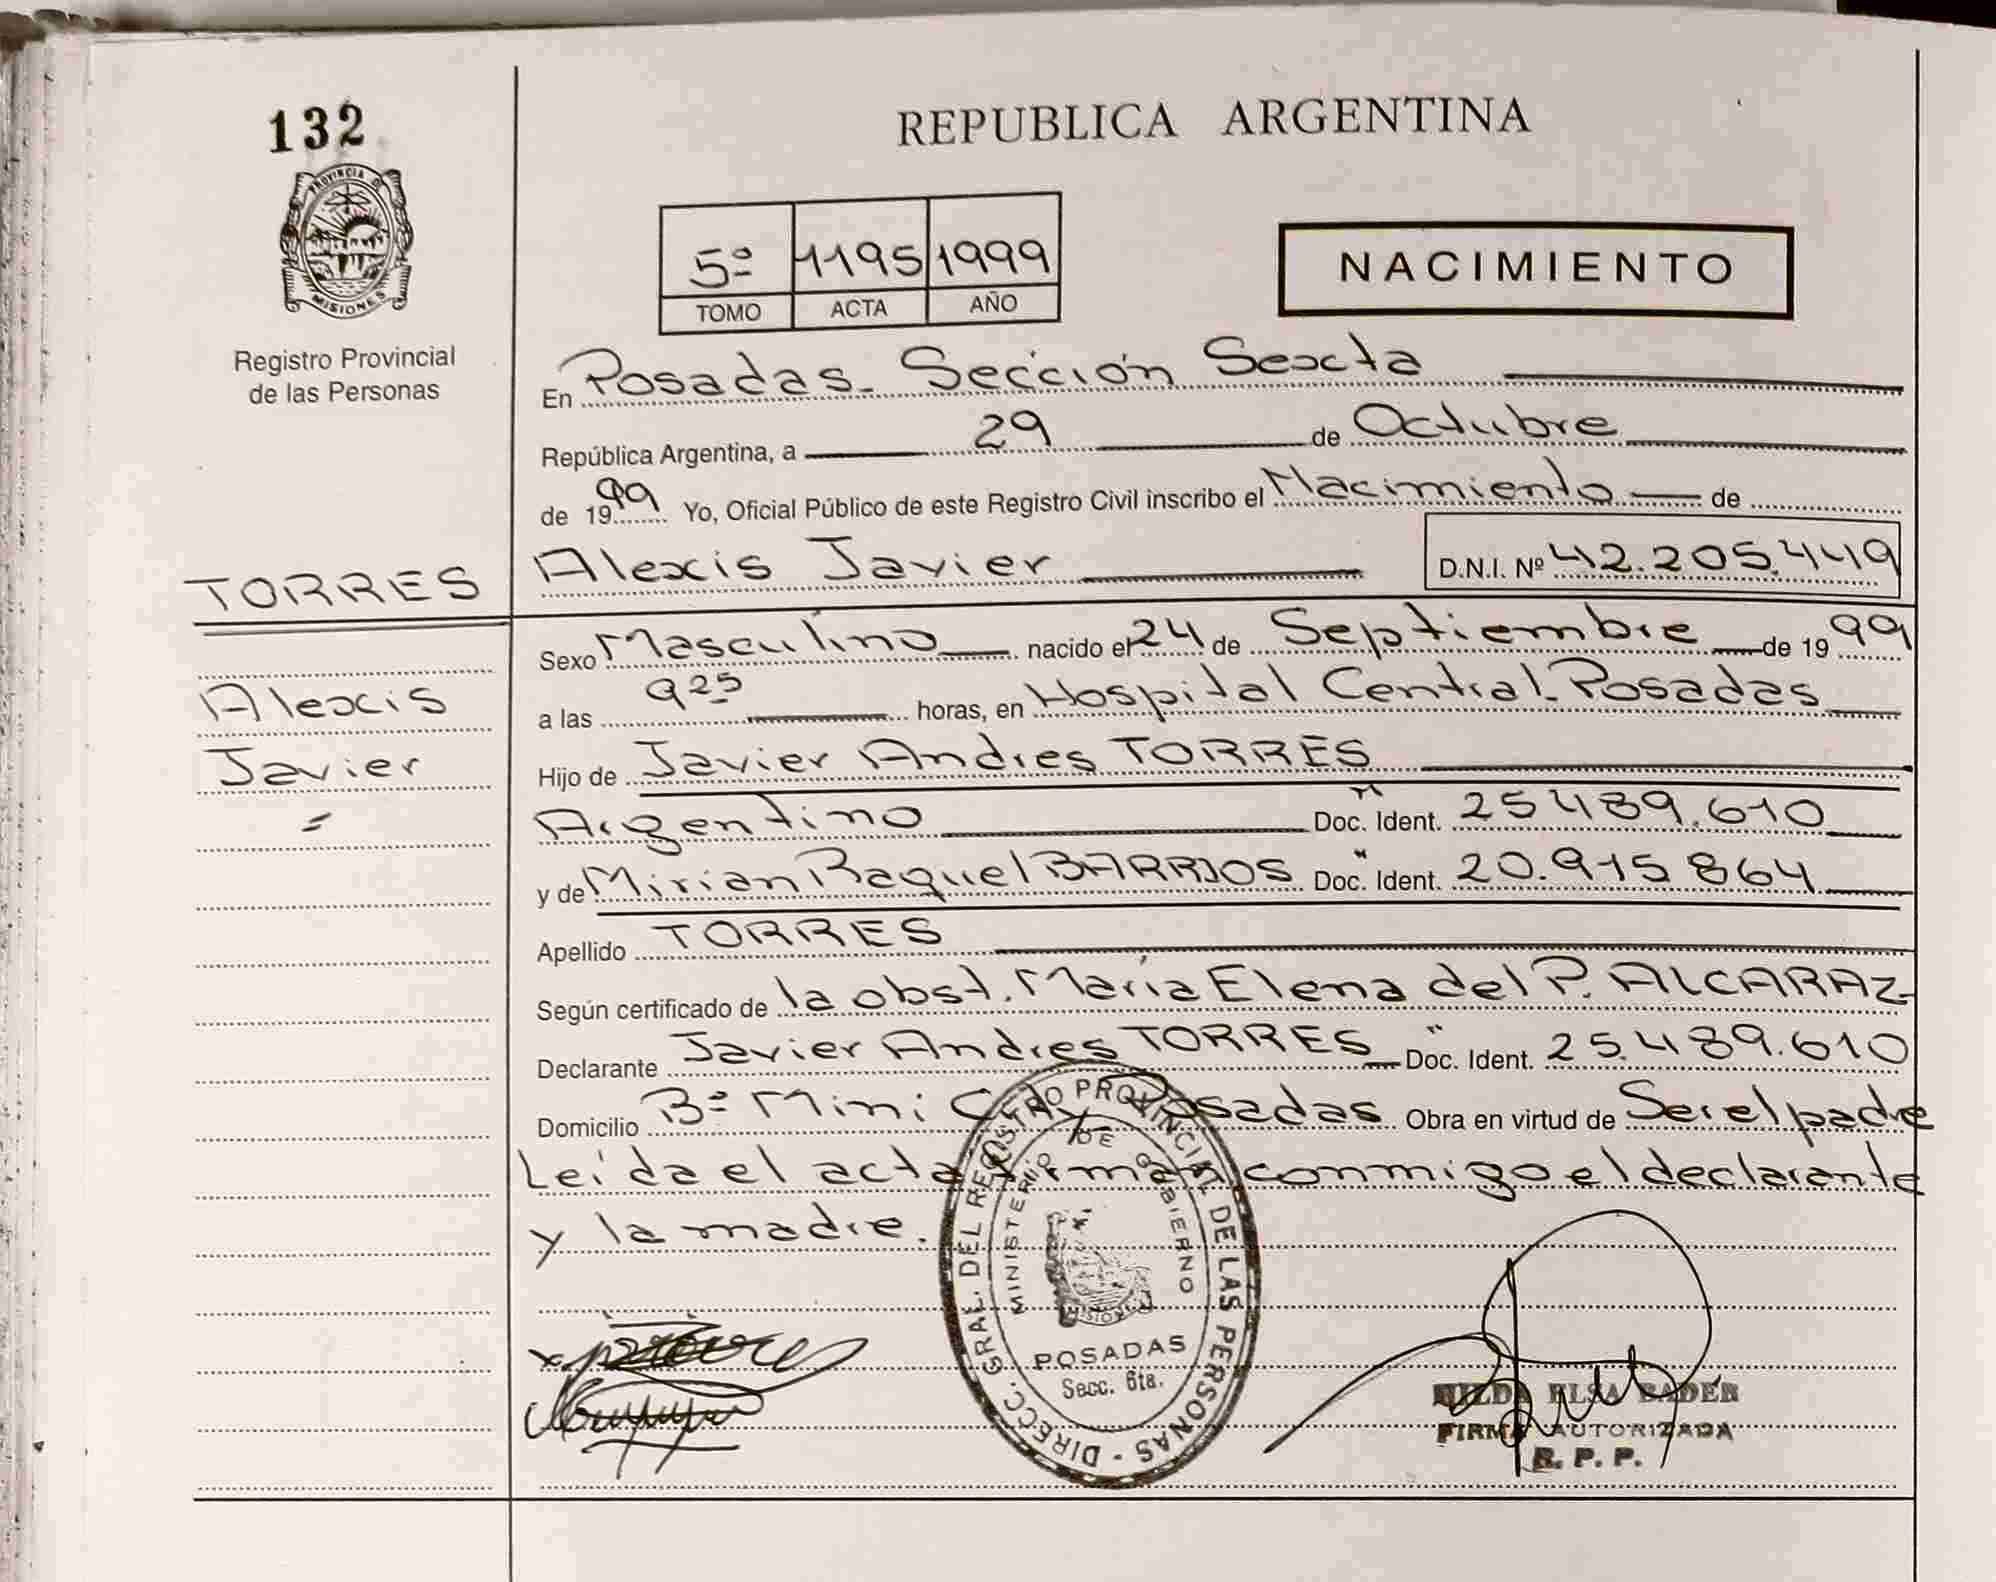 132
PROVINCIA D
MISIONES
Registro Provincial
de las Personas
TORRES
Alexis
Javier
=
REPUBLICA ARGENTINA
5º 1195 1999
TOMO ACTA AÑO
NACIMIENTO
En Posadas - Sección Sexta
República Argentina, a 29 de Octubre
de 1999 Yo, Oficial Público de este Registro Civil inscribo el Nacimiento de
Alexis Javier D.N.I. Nº 42.205.449
Sexo Masculino nacido el 24 de Septiembre de 1999
a las 9 25 horas, en Hospital Central - Posadas
Hijo de Javier Andres TORRES
Argentino Doc. Ident. 25 489.610
y de Mirian Raquel BARRIOS Doc. Ident. 20.915 864
Apellido TORRES
Según certificado de la obst. María Elena del P. ALCARAZ-
Declarante Javier Andres TORRES Doc. Ident. 25.489.610
Domicilio Bº Mini City Posadas Obra en virtud de Ser el padre
Leída el acta firman conmigo el declarante
y la madre.
DIRECC. GRAL. DEL REGISTRO PROVINCIAL DE LAS PERSONAS -
MINISTERIO DE GOBIERNO
MISIONES
POSADAS
Secc. 6ta.
HILDA ELSA BADER
FIRMA AUTORIZADA
R. P. P.